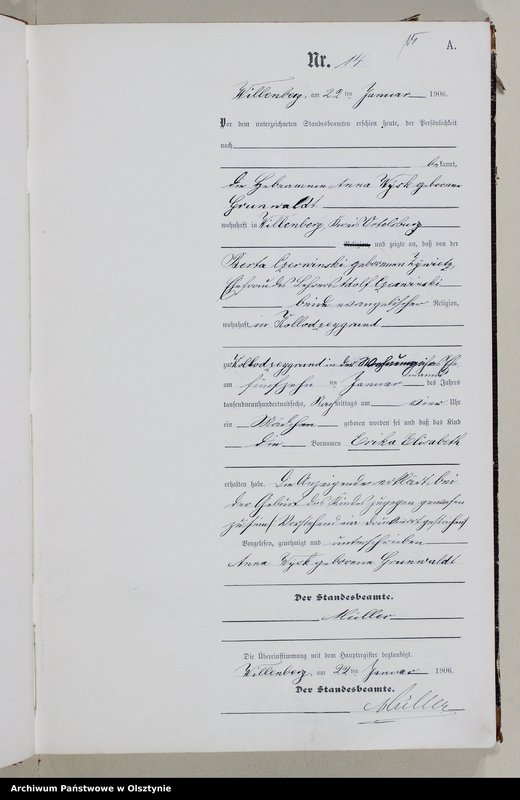 A.
Nr. 14
Willenberg, am 22 ten Januar 1906.
Vor dem unterzeichneten Standesbeamten erschien heute, der Persönlichkeit
nach
bekannt,
die Hebeamme Anna Wysk geborene
Grunwaldt
wohnhaft in Willenberg, Kreis Ortelsburg
Religion, und zeigte an, daß von der
Berta Czerwinski geborenen Zywietz,
Ehefrau des Lehrers Adolf Czerwinski
beide evangelischer Religion,
wohnhaft in Kollodzeygrund
zu Kollodzeygrund in der Wohnung ihres Ehe
mannes
am fünfzehn ten Januar des Jahres
tausendneunhundertundsechs, Nachmittags um vier Uhr
ein Mädchen geboren worden sei und daß das Kind
die Vornamen Erika Elisabeth
erhalten habe. Die Anzeigende erklärt, bei
der Geburt des Kindes zugegen gewesen
zu sein. (Vorstehend ein Druckwort gestrichen)
Vorgelesen, genehmigt und unterschrieben
Anna Wysk geborene Grunwaldt
Der Standesbeamte.
Müller
Die Übereinstimmung mit dem Hauptregister beglaubigt.
Willenberg, am 22 ten Januar 1906.
Der Standesbeamte.
Müller
Archiwum Państwowe w Olsztynie